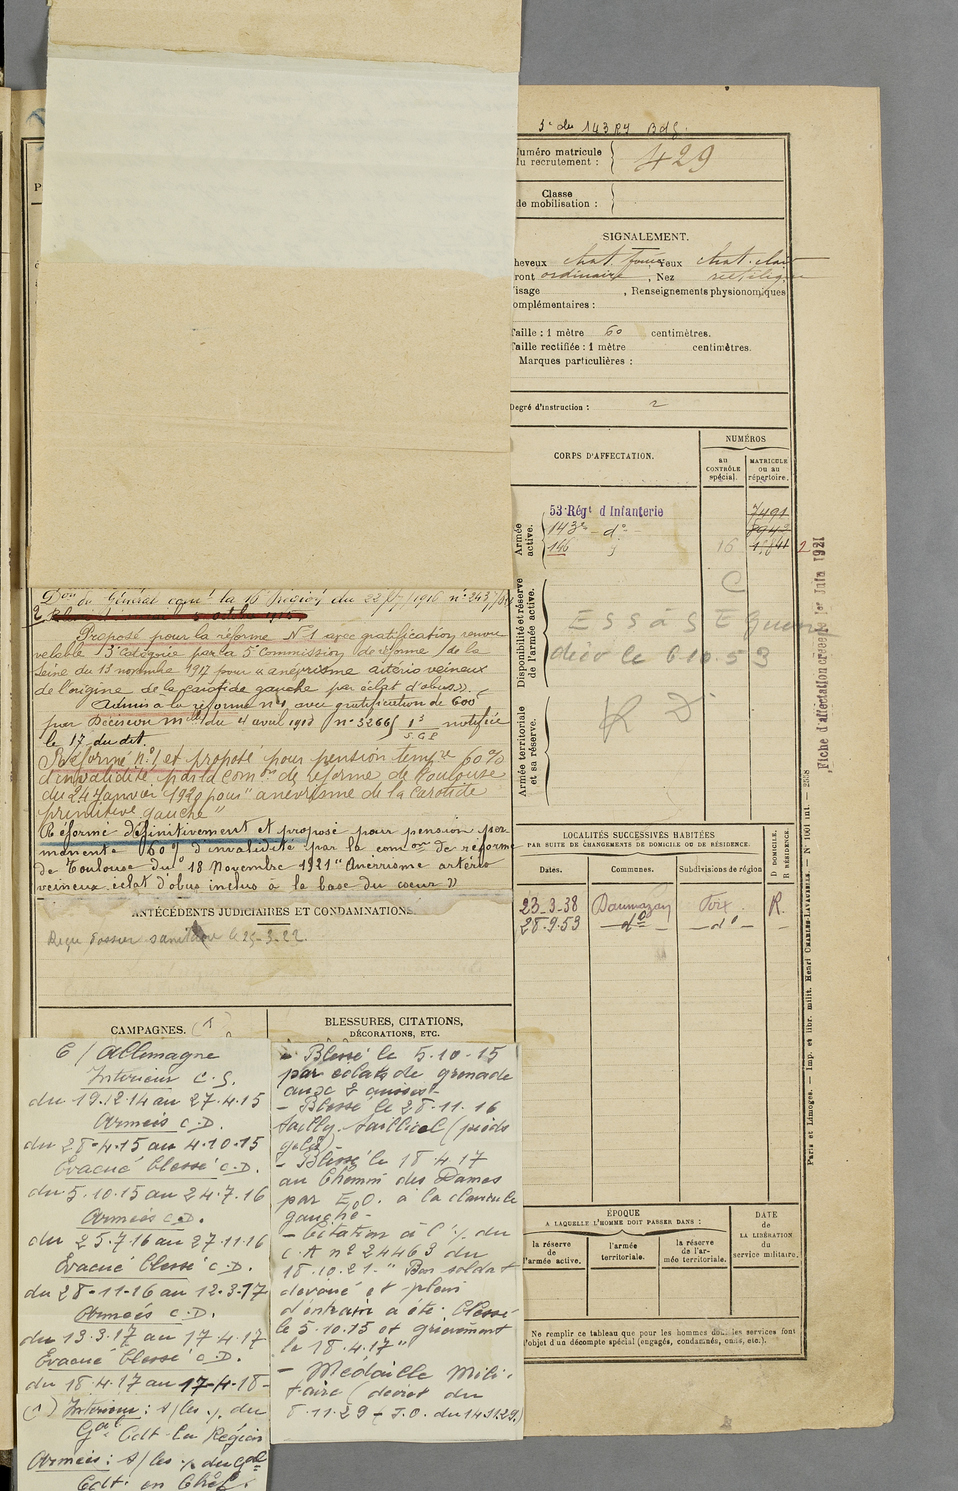 5e du 143 RY Bdg.
uméro matricule
u recrutement :
429
Classe
de mobilisation :
SIGNALEMENT.
heveux chat. foncé Yeux chat. clair
ront ordinaire, Nez rectiligne
isage , Renseignements physionomiques
omplémentaires :
Taille : 1 mètre 60 centimètres.
Taille rectifiée : 1 mètre centimètres.
Marques particulières :
Degré d'instruction : 2
CORPS D'AFFECTATION.
NUMÉROS
au CONTRÔLE spécial.
MATRICULE ou au répertoire.
Armée active.
53e Régt d'Infanterie 7491
143e - do -
146 16
Disponibilité et réserve de l'armée active.
C
décé le 6 10.53
Armée territoriale et sa réserve.
R D
Fiche d'affectation créée le 1er Juin 1921
Don du Général comt la 16 Région du 22/7/1916 no 243
Proposé pour la réforme No 1 avec gratification renou
velable 3e Catégorie par la 5e Commission de réforme de la
Seine du 13 novembre 1917 pour « anévrisme artério veineux
de l'origine de la carotide gauche par éclat d'obus ».
Admis à la réforme no 1 avec gratification de 600
par Décision Mlle du 4 avril 1918 no 3266 notifiée
le 17 du dit
Réformé no 1 et proposé pour pension tempre 60%
d'invalidité par la comon de réforme de Toulouse
du 24 Janvier 1920 pour "anévrisme de la carotide
primitive gauche"
Réformé définitivement et proposé pour pension per
manente 60% d'invalidité par la comon de réforme
de Toulouse du 18 Novembre 1921 "Anévrisme artério
veineux éclat d'obus inclus à la base du coeur"
ANTÉCÉDENTS JUDICIAIRES ET CONDAMNATIONS.
Reçu dossier sanitaire le 25-3-22.
LOCALITÉS SUCCESSIVES HABITÉES
PAR SUITE DE CHANGEMENTS DE DOMICILE OU DE RÉSIDENCE.
D DOMICILE.
R RÉSIDENCE.
Dates. Communes. Subdivisions de région
23-3-38 Daumazan Foix R.
28.9.53 - do - - do - -
CAMPAGNES. (1)
C / Allemagne
Intérieur C.S.
du 19.12.14 au 27.4.15
Armées C.D.
du 28-4.15 au 4.10.15
Evacué blessé C.D.
du 5.10.15 au 24.7.16
Armées C.D.
du 25.7.16 au 27.11.16
Evacué blessé C.D.
du 28-11-16 au 12.3.17
Armées C.D.
du 13.3.17 au 17.4.17
Evacué blessé C.D.
du 18.4.17 au 17-4-18-
(1) Intérieur : s/les . du
Gal Cdt la Région
Armées : s/les . du Gal
Cdt. en Chef.
BLESSURES, CITATIONS,
DÉCORATIONS, ETC.
- Blessé le 5.10-15
par éclats de grenade
aux 2 cuisses -
- Blessé le 28.11.16
Sailly-Saillisel (pieds
gelés) -
- Blessé le 18.4.17
au Chemin des Dames
par E.O. à la clavicule
gauche -
- Citation à l' . du
C.A no 24463 du
18.10.21. " Bon soldat
dévoué et plein
d'entrain a été blessé
le 5.10.15 et grièvement
le 18.4.17 "
- Médaille Mili.
taire (décret du
8.11.29 - J.O. du 14.11.29.)
ÉPOQUE
A LAQUELLE L'HOMME DOIT PASSER DANS :
DATE
de
LA LIBÉRATION
du
service militaire.
la réserve de l'armée active.
l'armée territoriale.
la réserve de l'armée territoriale.
Ne remplir ce tableau que pour les hommes dont les services font
l'objet d'un décompte spécial (engagés, condamnés, omis, etc.).
Paris et Limoges. — Imp. et libr. milit. Henri CHARLES-LAVAUZELLE. — N° 1001 int. — 2558